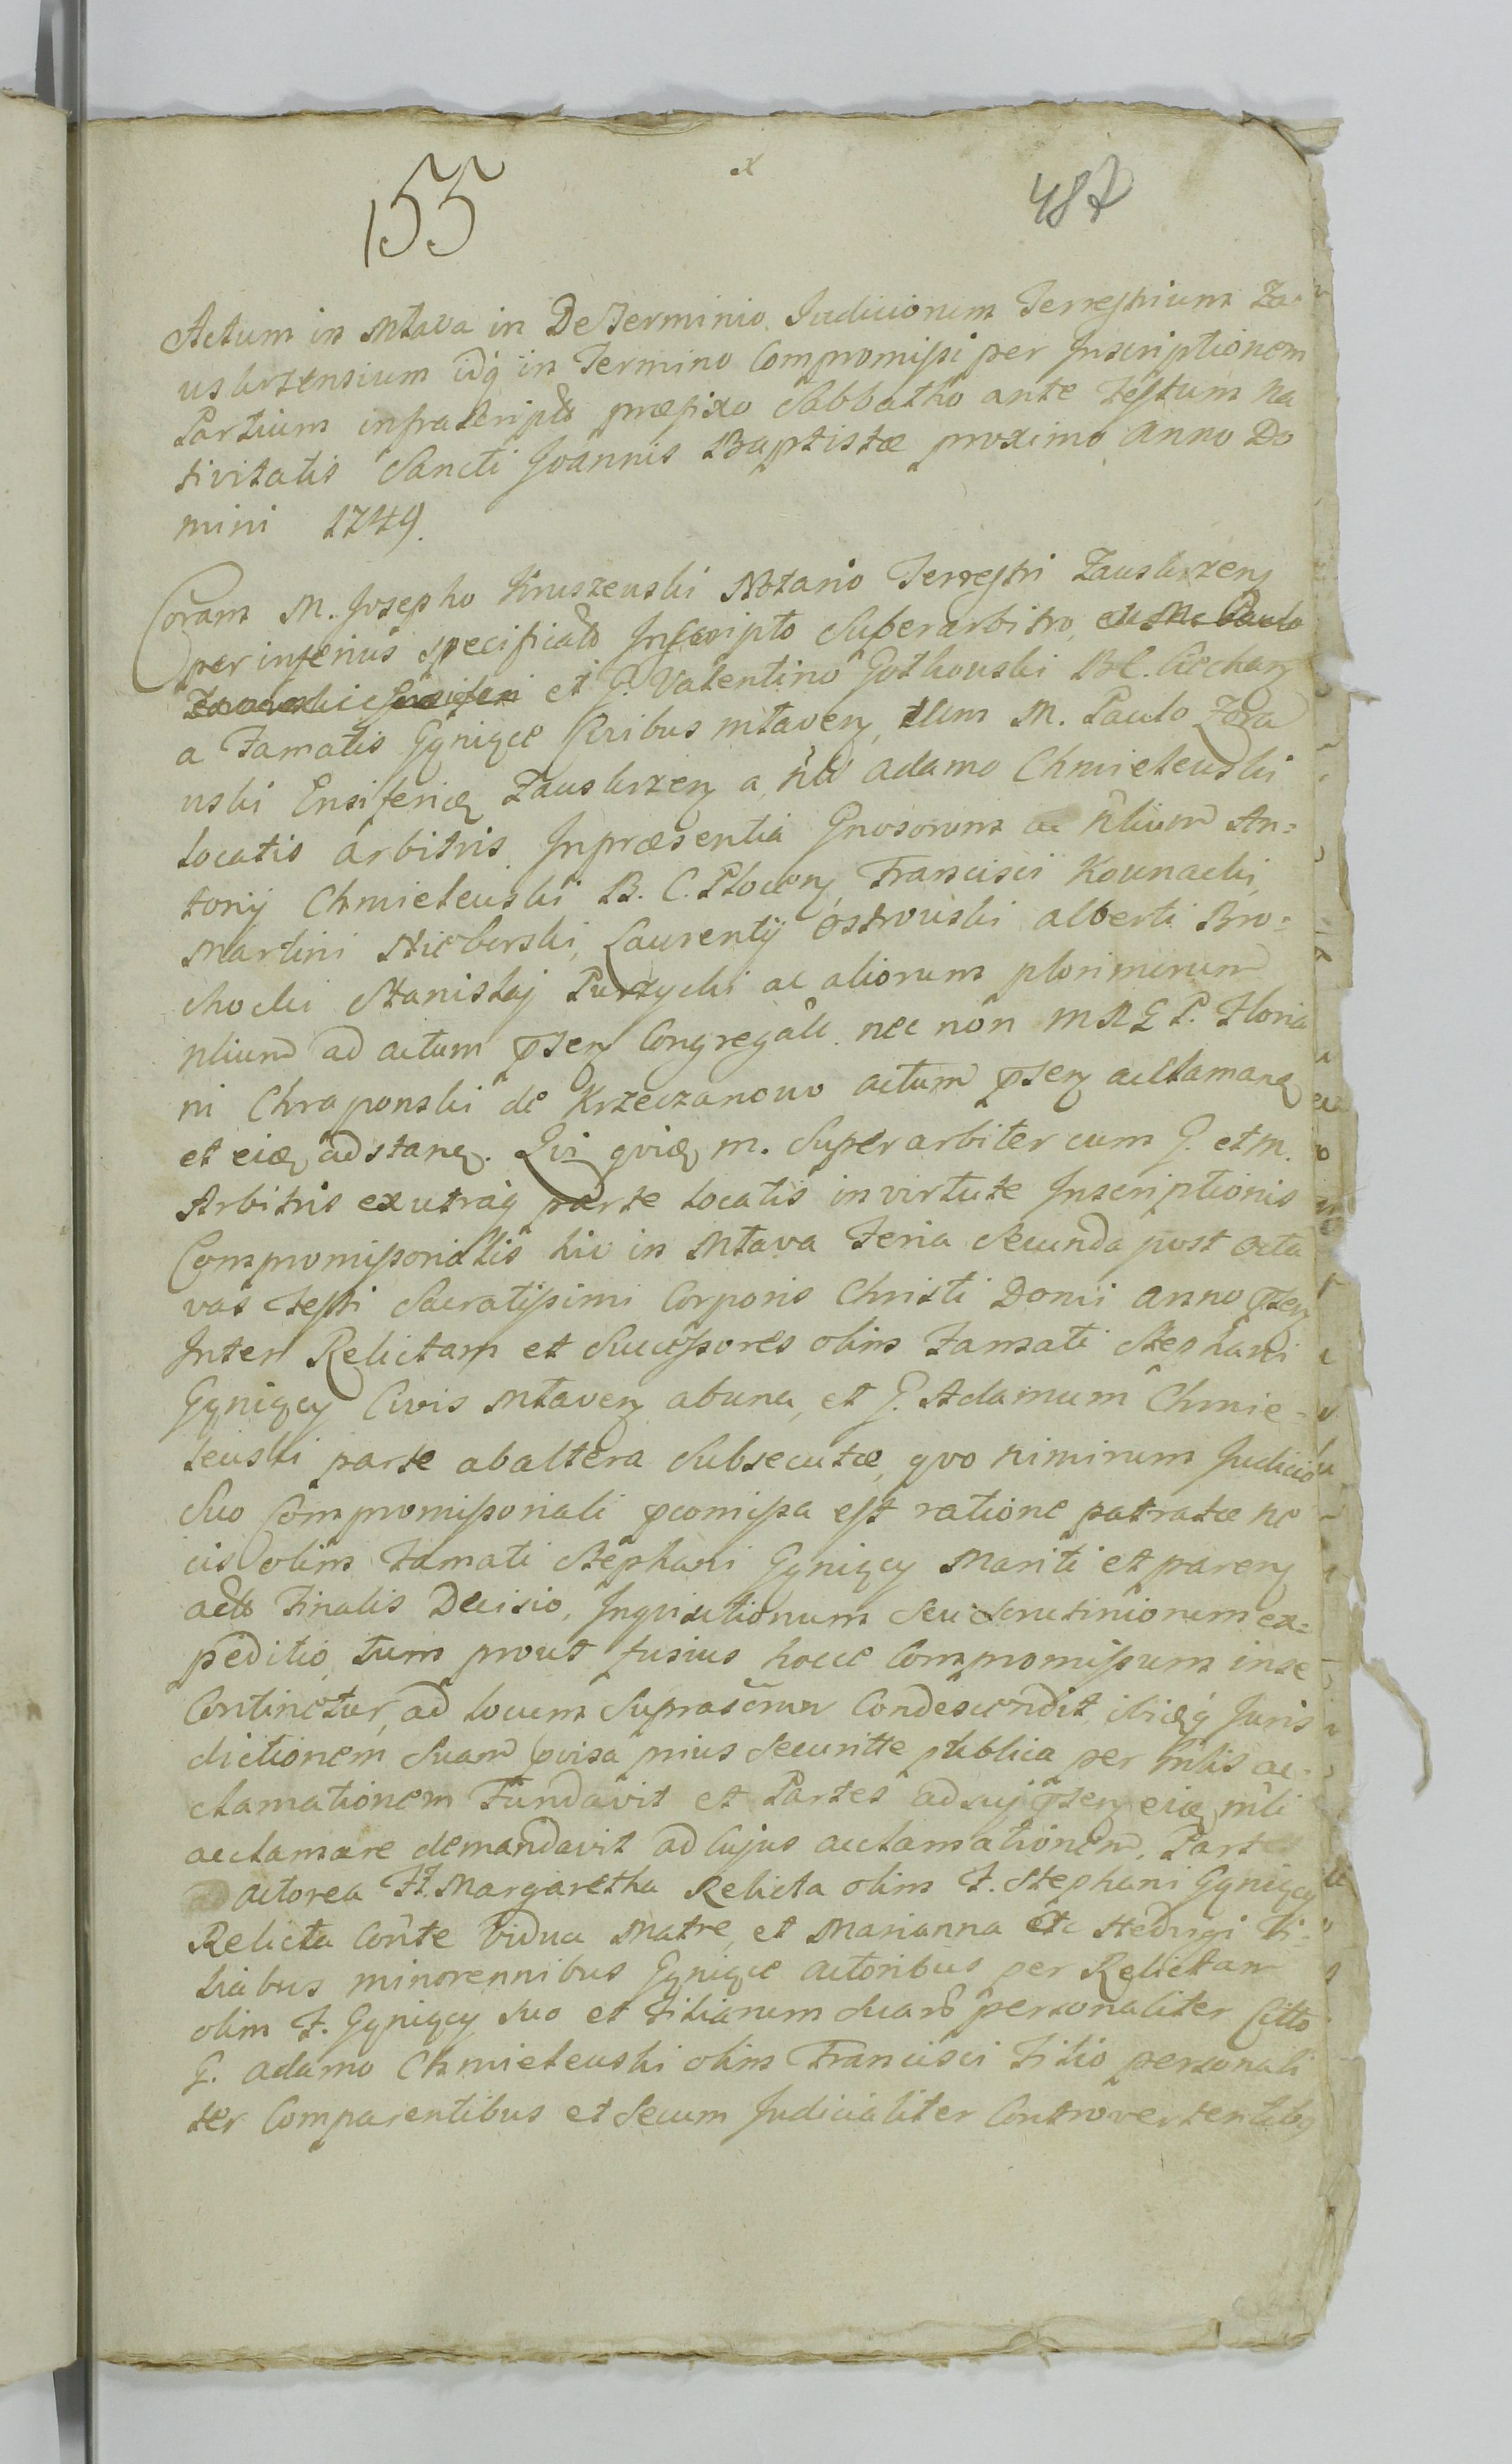 155
x
487
Actum in Mlava in DeTerminio Iudiciorum Terrestrium Za-
uskrzensium idq in Termino Compromissi per Inscriptionem
Partium infrascripto præfixo Sabbatho ante Festum Na
tivitatis Sancti Joannis Baptistæ proximo Anno Do
mini 1749.
Coram M. Josepho Kruszewski Notario Terrestri Zauskrzeń
per inferius specificato Inscripto Superarbitro, et M. Paulo
et G. Valentino Gothowski Bł. Ciechan
a Famatis Gąniące Civibus mlaven, tum M. Paulo Zora
wski Ensifero Zauskrzen a, Adamo Chmielewski
locatis arbitris Inpræsentia Gnosorum ac nlium An=
tonij Chmielewski B. C. Plocen, Francisci Kownacki,
Martini Nicborski, Laurentij Ostrowski Alberti Bro=
chocki Stanislaj Purzycki ac aliorum plorimorum
nlium ad actum pSen Congregal. nec non MRGP. Floria
ni Chraponski de Krzeczanowo actum pSen acclaman
et eid adstan. Qui quid m. Superarbiter cum G. et M.
Arbitris exutraq parte locatis invirtute Inscriptionis
Compromissorialis hic in Mlava Feria Secunda post Octa
vas Festi Sacratissimi Corporis Christi Domi anno pSen
Inter Relictam et Successores olim Famati Stephani
Gąniący Civis Mlaven abuna, et G. Adamum Chmie-
lewski parte abaltera Subsecutæ, qvo nimirum Judicio
Suo Compromissoriali pcomissa est ratione patratæ ne
cis olim Famati Stephani Gąniący Mariti et paren
actō Finalis Decisio, Inqvisitionum Seu Scrutiniorum ex=
peditio tum prout fusius hocce Compromissum inse
Continetur, ad locum Suprascrum Condescendit, ibidq Juris
dictionem Suam pvisa prius Securitte publica per mlis ac=
clamationem Fundavit et Partes adsuj pSen eid mli
acclamare demandavit ad Cujus acclamationem. Partes
actorea F. Margaretha Relicta olim F. Stephani Gąniący
Relicta Conte Vidua Matre, et Marianna Etc Hedvigi Fi-
liabus minorennibus Gąniące Actoribus per Relictam
olim F. Gąniący Suo et Filiarum Suarō personaliter Citto
G. Adamo Chmielewski olim Francisci Filio personali
ter Comparentibus et Secum Judicialiter Controvertentibq